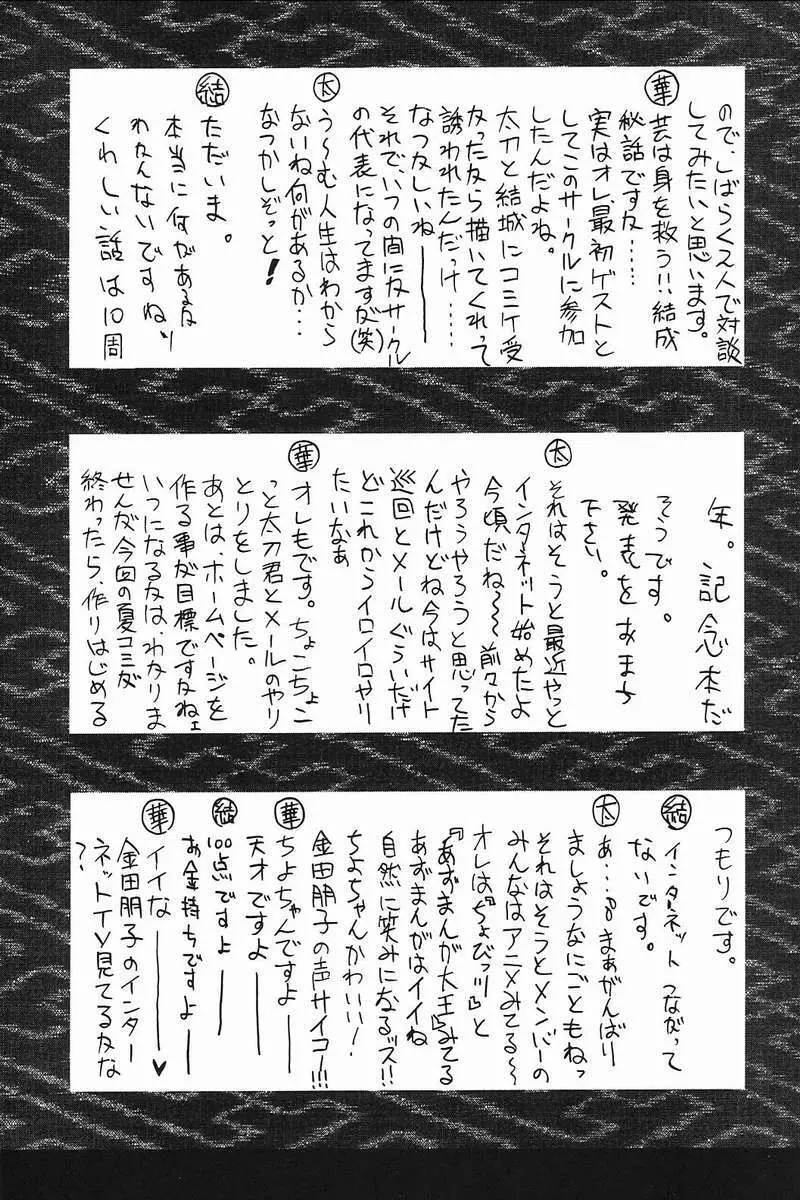 ので、しばらく2人で対談
してみたいと思います。
華 芸は身を救う!!結成
秘話ですな……
実はオレ、最初ゲストと
してこのサークルに参加
したんだよね。
太刀と結城にコミケ受
かったなら描いてくれって
誘われたんだっけ……
なつかしいね――
それで、いつの間にかサークル
の代表になってますが(笑)
太 う~む人生はわから
ないね何があるか…
なつかしぞっと!
結 ただいま。
本当に何があるか
わかんないですね。
くわしい話は10周
年。記念本だ
そうです。
発表をおまち
下さい。
太 それはそうと最近やっと
インターネット始めたよ
今頃だね~~前々から
やろうやろうと思ってた
んだけどね今はサイト
巡回とメールぐらいだけ
どこれからイロイロやり
たいなぁ
華 オレもです。ちょこちょこ
っと太刀君とメールのやり
とりをしました。
あとは、ホームページを
作る事が目標ですかねェ
いつになるかは、わかりま
せんが今回の夏コミが
終わったら、作りはじめる
つもりです。
結 インターネットつながって
ないです。
太 あ…。まぁがんばり
ましょうなにごともねっ
それはそうとメンバーの
みんなはアニメみてる~
オレは『ちょびっツ』と
『あずまんが大王』みてる
あずまんがはイイね
自然に笑みになるッス!!
ちよちゃんかわいい!
金田朋子の声サイコー!!!
華 ちよちゃんですよ――
天才ですよ――
結 100点ですよ――
お金持ちですよ――
華 イイな――♥
金田朋子のインター
ネットTV見てるかな
?